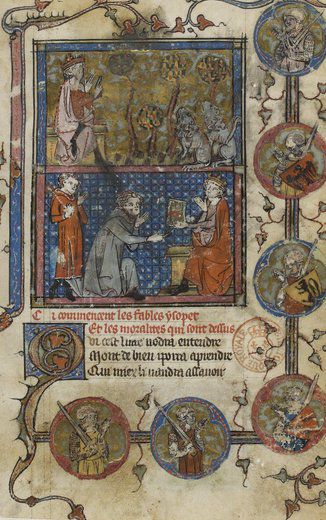 Ci commencent les fables ysopet
Et les moralites qui sont dessus
Qui cest liure vodra entendre
Mont de bien i porra aprendre
Qui miex li vandra assauoir